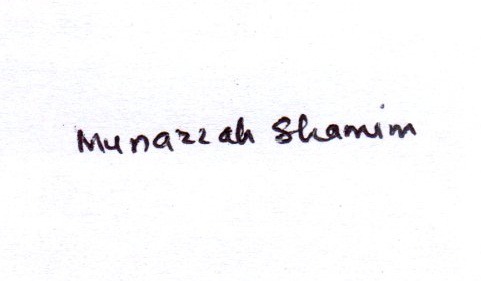 Munazzah Shamim